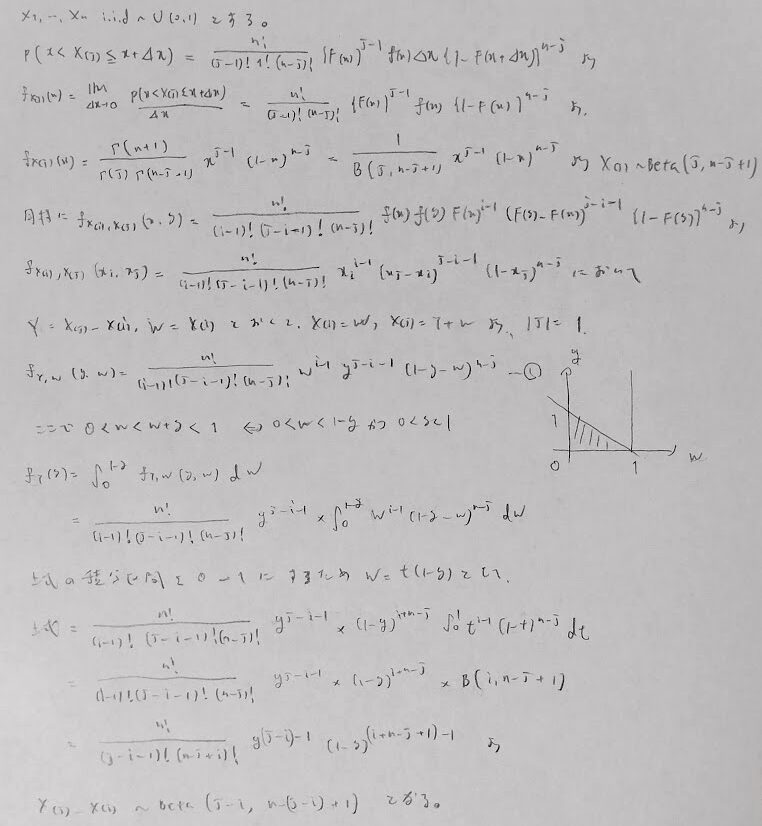 X1, …, Xn i.i.d ~ U(0,1) とする。
P(x < X(j) ≤ x+Δx) = n!/((j-1)! 1! (n-j)!) {F(x)}^{j-1} f(x)Δx {1-F(x+Δx)}^{n-j} より
f_{X(j)}(x) = lim_{Δx→0} P(x<X(j)≤x+Δx)/Δx = n!/((j-1)! (n-j)!) {F(x)}^{j-1} f(x) {1-F(x)}^{n-j} より、
f_{X(j)}(x) = Γ(n+1)/(Γ(j) Γ(n-j+1)) x^{j-1} (1-x)^{n-j} = 1/B(j, n-j+1) x^{j-1} (1-x)^{n-j} より X(j) ~ Beta(j, n-j+1)
同様に f_{X(i),X(j)}(x, y) = n!/((i-1)! (j-i-1)! (n-j)!) f(x) f(y) F(x)^{i-1} (F(y)-F(x))^{j-i-1} {1-F(y)}^{n-j} より
f_{X(i),X(j)}(xi, xj) = n!/((i-1)! (j-i-1)! (n-j)!) xi^{i-1} (xj-xi)^{j-i-1} (1-xj)^{n-j} において
Y = X(j) - X(i), W = X(i) とおくと. X(i)=W, X(j)=Y+W より、|J|=1.
f_{Y,W}(y, w) = n!/((i-1)! (j-i-1)! (n-j)!) w^{i-1} y^{j-i-1} (1-y-w)^{n-j} …①
y
1
0
1
w
ここで 0<w<w+y<1 ⇔ 0<w<1-y かつ 0<y<1
f_Y(y) = ∫_0^{1-y} f_{Y,W}(y, w) dw
= n!/((i-1)! (j-i-1)! (n-j)!) y^{j-i-1} × ∫_0^{1-y} w^{i-1} (1-y-w)^{n-j} dw
上式の積分区間を 0→1 にするため w = t(1-y) として、
上式 = n!/((i-1)! (j-i-1)! (n-j)!) y^{j-i-1} × (1-y)^{i+n-j} ∫_0^1 t^{i-1} (1-t)^{n-j} dt
= n!/((i-1)! (j-i-1)! (n-j)!) y^{j-i-1} × (1-y)^{i+n-j} × B(i, n-j+1)
= n!/((j-i-1)! (n-j+i)!) y^{(j-i)-1} (1-y)^{(i+n-j+1)-1} より
X(j) - X(i) ~ Beta(j-i, n-(j-i)+1) となる。